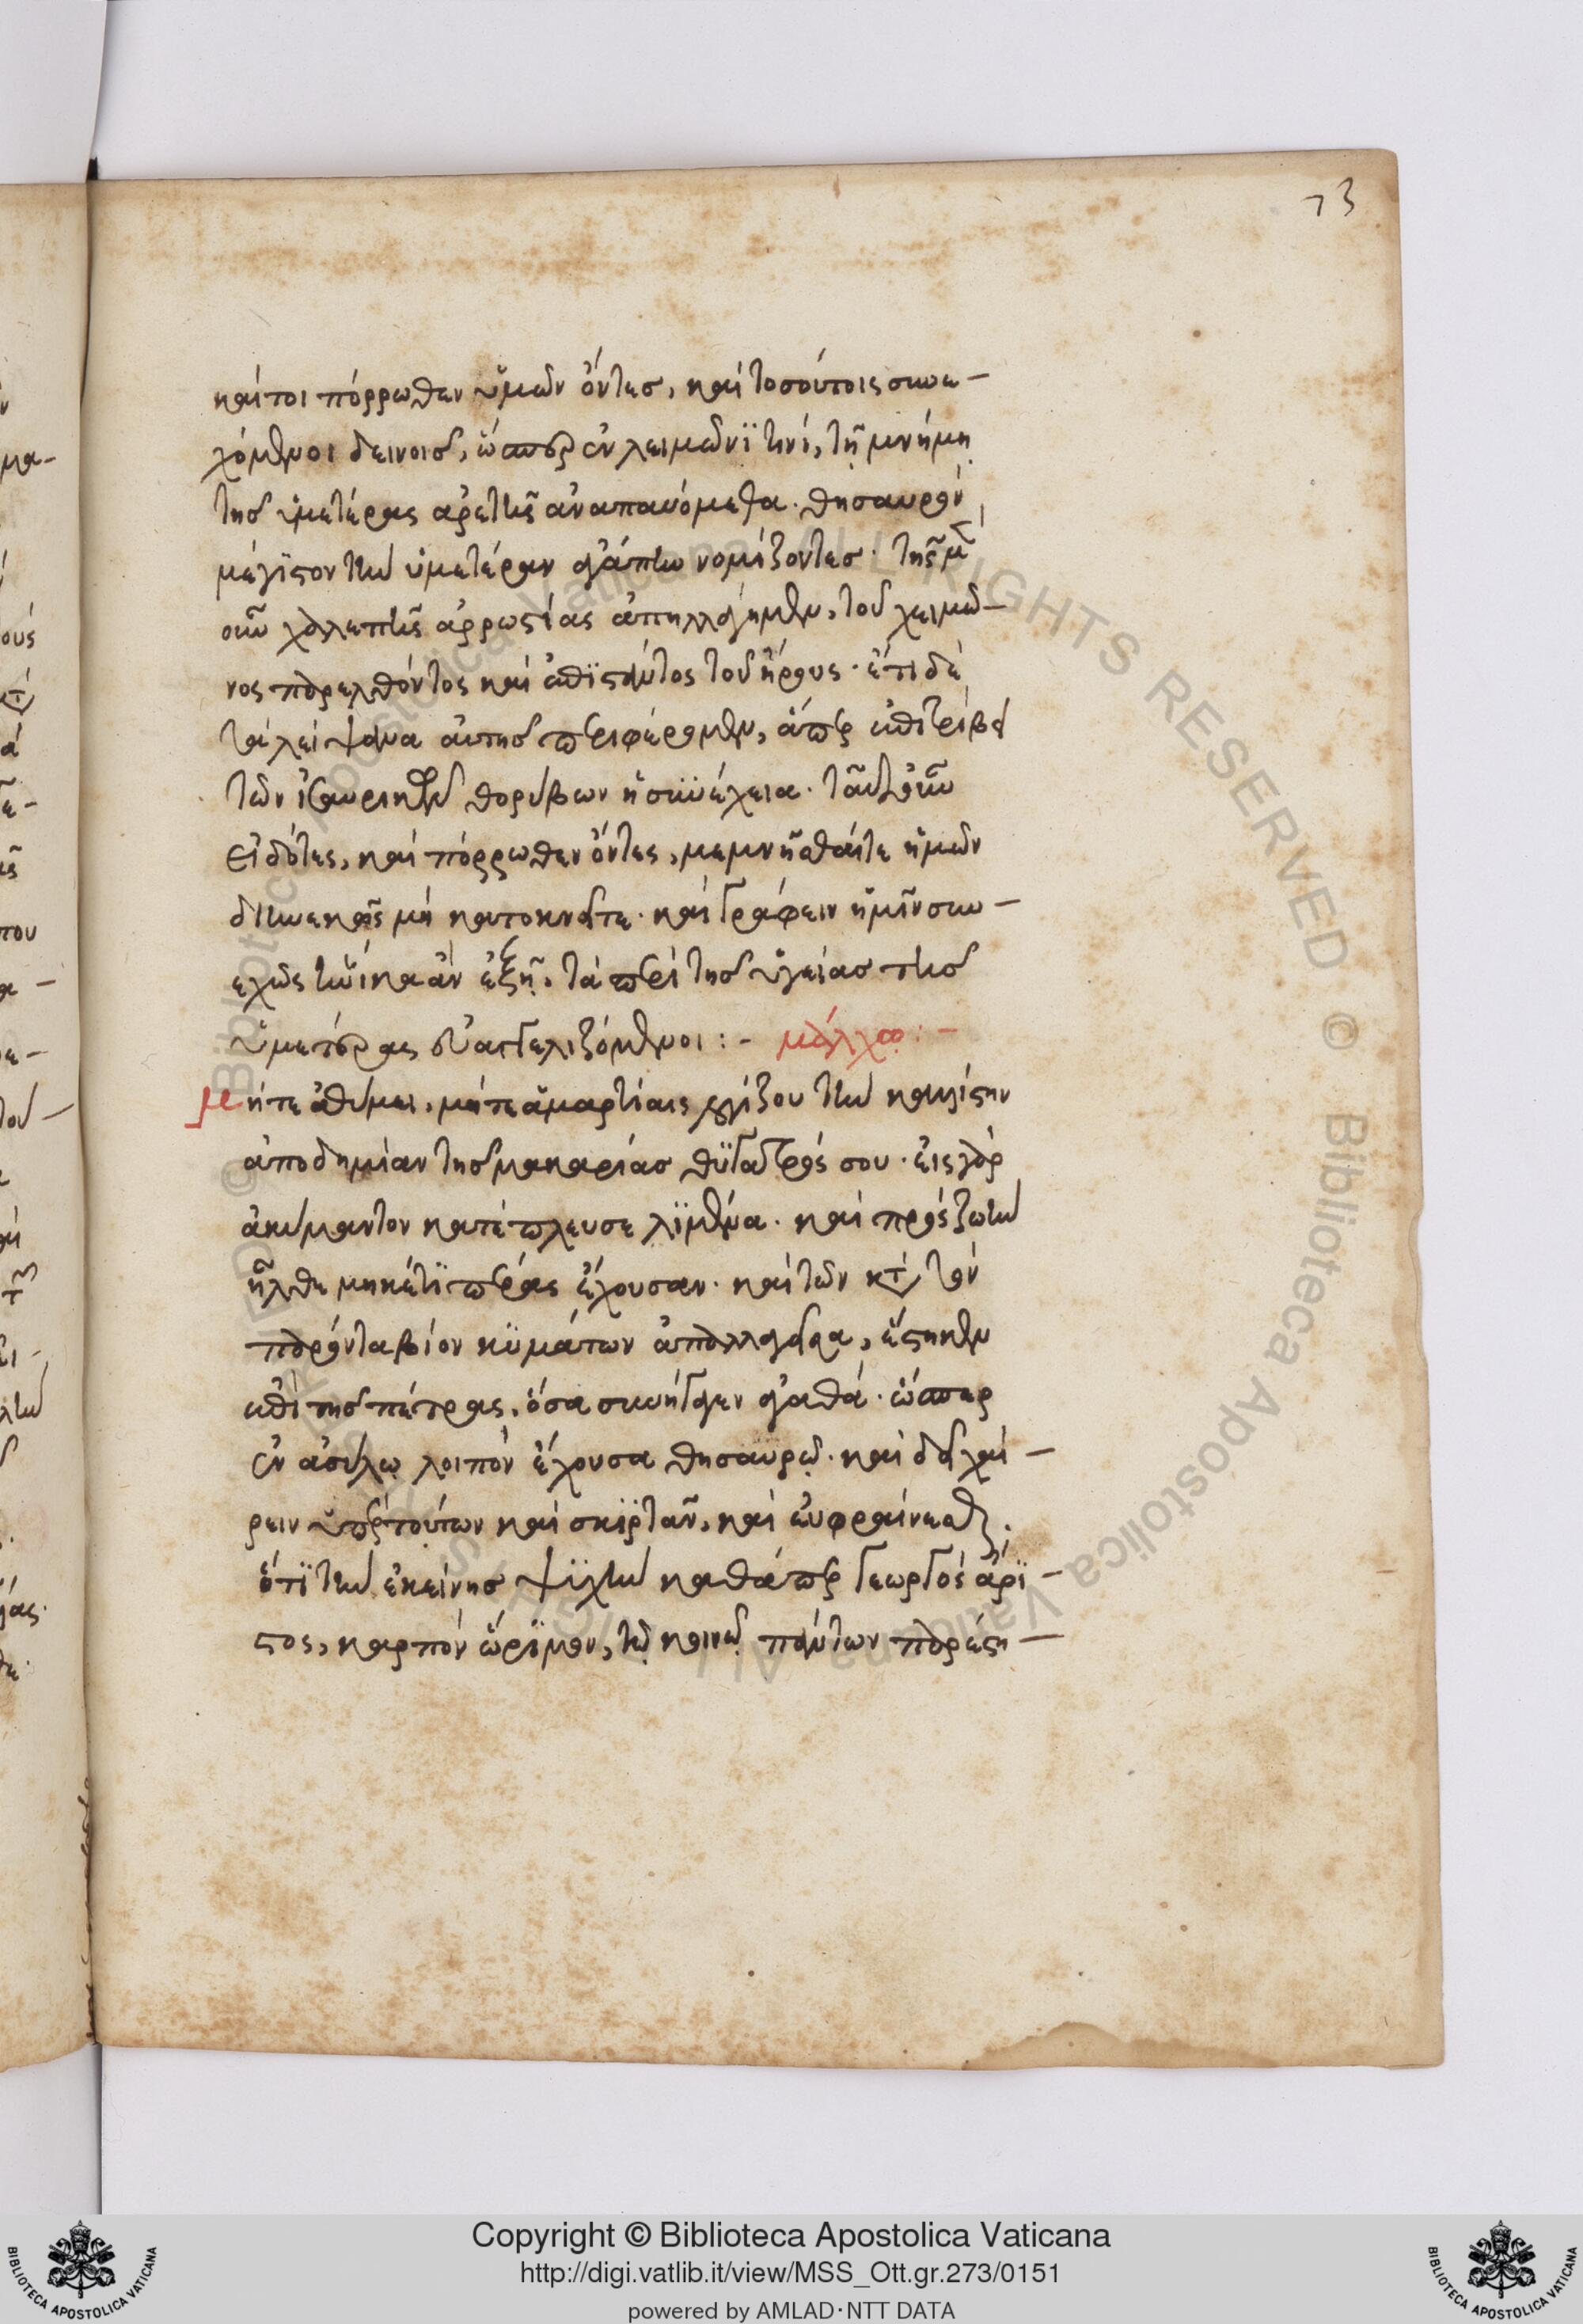 73
καίτοι πόρρωθεν ὑμῶν ὄντες, καὶ τοσούτοις συνε-
χόμενοι δεινοῖς, ὥσπερ ἐν λειμῶνϊ τινὶ, τῇ μνήμῃ
τῆς ὑμετέρας ἀρετῆς ἀναπαυόμεθα. θησαυρὸν
μέγιστον τὴν ὑμετέραν ἀγάπην νομίζοντες. τῆς μὲν
οὖν χαλεπῆς ἀρρωστίας ἀπηλλάγημεν, τοῦ χειμῶ-
νος παρελθόντος καὶ ἐπϊστάντος τοῦ ἦρους. ἔτι δὲ
τὰ λείψανα αὐτῆς περιφέρομεν, ἅπερ ἐπιτρίβει
τῶν ἰσαυρικῶν θορύβων ἡ συνέχεια. ταῦτ οὖν
εἰδότες, καὶ πόρρωθεν ὄντες, μεμνῆσθαί τε ἡμῶν
διηνεκῶς μὴ κατοκνεῖτε. καὶ γράφειν ἡμῖν συν-
εχῶς ἡνίκα ἂν ἐξῇ, τὰ περὶ τῆς ὑγείας τῆς
ὑμετέρας εὐαγγελιζόμενοι :- μάλχω :-
μήτε ἀθύμει, μήτε ἁμαρτίαις λογίζου τὴν καλλίστην
ἀποδημίαν τῆς μακαρίας θϋγατρός σου. εἰς γὰρ
ἀκύμαντον κατέπλευσε λϊμένα. καὶ πρὸς ζωὴν
ἦλθε μηκέτϊ πέρας ἔχουσαν. καὶ τῶν κατὰ τὸν
παρόντα βίον κϋμάτων ἀπαλλαγεῖσα, ἕστηκεν
ἐπὶ τῆς πέτρας, ὅσα συνήγαγεν ἀγαθά. ὥσπερ
ἐν ἀσύλω λοιπὸν ἔχουσα θησαυρῷ. καὶ δεῖ χαί-
ρειν ὑπὲρ τούτων καὶ σκϊρτᾶν, καὶ εὐφραίνεσθαι.
ὅτϊ τὴν ἐκείνης ψϋχὴν καθάπερ γεωργὸς ἄρϊ-
στος, καρπὸν ὥρϊμον, τῷ κοινῷ πάντων παρέστη-
Copyright © Biblioteca Apostolica Vaticana
http://digi.vatlib.it/view/MSS_Ott.gr.273/0151
powered by AMLAD·NTT DATA